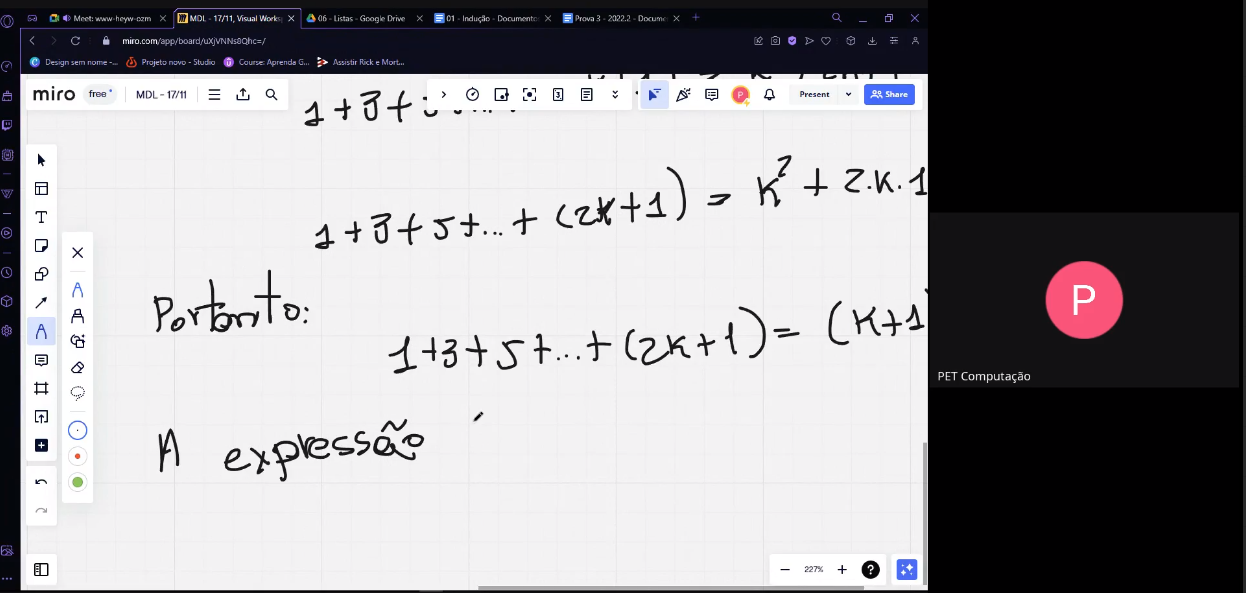 Meet: www-heyw-ozm
MDL - 17/11, Visual Works
06 - Listas - Google Drive
01 - Indução - Documento
Prova 3 - 2022.2 - Docume
miro.com/app/board/uXjVNNs8Qhc=/
Design sem nome -...
Projeto novo - Studio
Course: Aprenda G...
Assistir Rick e Mort...
miro
free
MDL - 17/11
3
P
Present
Share
1+3+5
1+3+5+...+(2k+1) = k² + 2.k.1
Portanto:
1+3+5+...+(2k+1) = (k+1
A expressão
P
PET Computação
227%